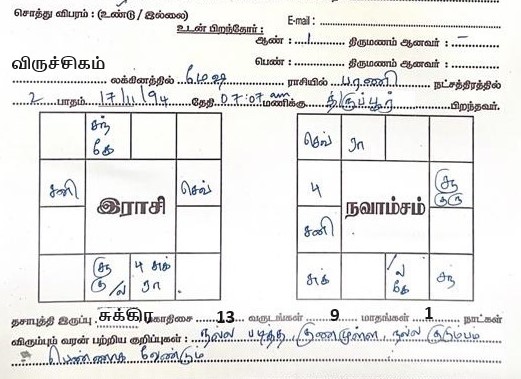 சொத்து விபரம் : (உண்டு / இல்லை)
E-mail :
உடன் பிறந்தோர் :
ஆண் : 1 திருமணம் ஆனவர் : –
பெண் : திருமணம் ஆனவர் :
விருச்சிகம் லக்கினத்தில் மேஷ ராசியில் பரணி நட்சத்திரத்தில்
2 பாதம் 17/11/94 தேதி 07:07 am மணிக்கு திருப்பூர் பிறந்தவர்.
சந் கே
செவ் ரா
சனி செவ்
4 சூ குரு
இராசி
நவாம்சம்
சனி
சூ கு /ல 4 சுக் ரா
சுக் ல கே சந்
தசாபுத்தி இருப்பு : சுக்கிர மகாதிசை 13 வருடங்கள் 9 மாதங்கள் 1 நாட்கள்
விரும்பும் வரன் பற்றிய குறிப்புகள் : நல்ல படித்த, குணமுள்ள, நல்ல குடும்பம்
பெண்ணாக வேண்டும்